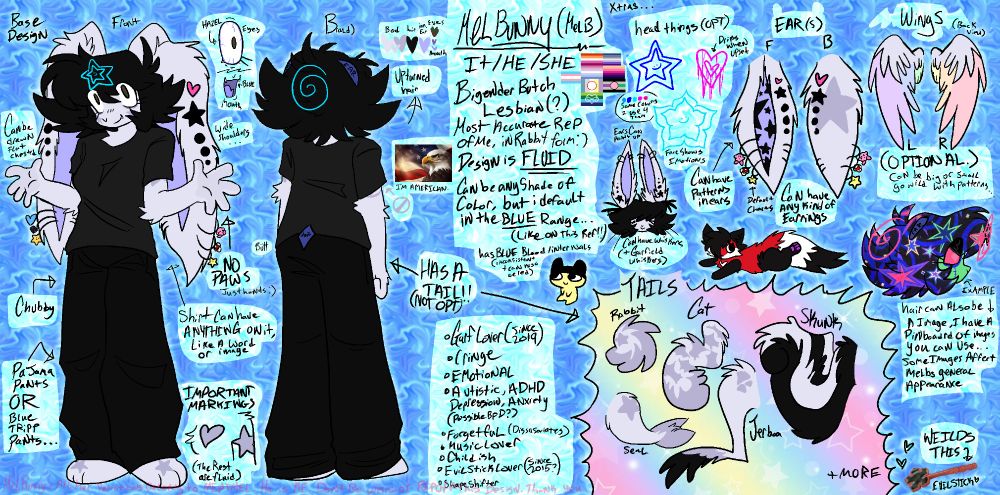 Base
Design
Front
HAZEL
Eyes
Blue
Mouth
Wide
Shoulders...
Can be
drawn
Flat
chested
NO
PAWS
Just hands :)
Chubby
Shirt Can have
ANYTHING ON it,
LIKE A WORD
OR image
Pajama
PANTS
OR
Blue
TRIPP
PANTS...
IMPORTANT
MARKINGS
(The Rest
are fluid)
Back
Bod
hair
Fur
Eyes
Mouth
Upturned
hair
I'm AMERICAN
MEL BUNNY (MelB)
It/HE/SHE
Bigender Butch
Lesbian (?)
Most Accurate Rep
of Me, in Rabbit form :)
Design is FLUID
Can be any Shade of
Color, but i default
in the BLUE Range...
(Like on This Ref!!)
has BLUE Blood/internals
HAS A
TAIL!!
(NOT OPT!)
Gaff Lover (since
2019)
Cringe
EMOTIONAL
Autistic, ADHD
Depression, Anxiety
(Possible BPD?)
Forgetful (Dissasociates)
Music Lover
Childish
Evil Stick Lover (since
2015?)
Shapeshifter
Xtras...
head things (OPT)
Drips
When
Upset
Some Colors
Face Shows
Emotions
Ears Can
Can have Whiskers
(+ Garfield
Whiskers)
EAR(S)
F
B
Can have
Patterns
in ears
Default
Charms
Can have
ANY Kind of
Earrings
Wings
(Back
View)
L
R
(OPTIONAL)
Can be big or Small
go wild with patterns
EXAMPLE
Hair can Also be
A Image, I have A
Pinboard of images
you can Use...
Some Images Affect
Melbs general
Appearance
TAILS
Rabbit
Cat
Skunk
Seal
Jerboa
+ MORE
WEILDS
THIS
EVILSTICK